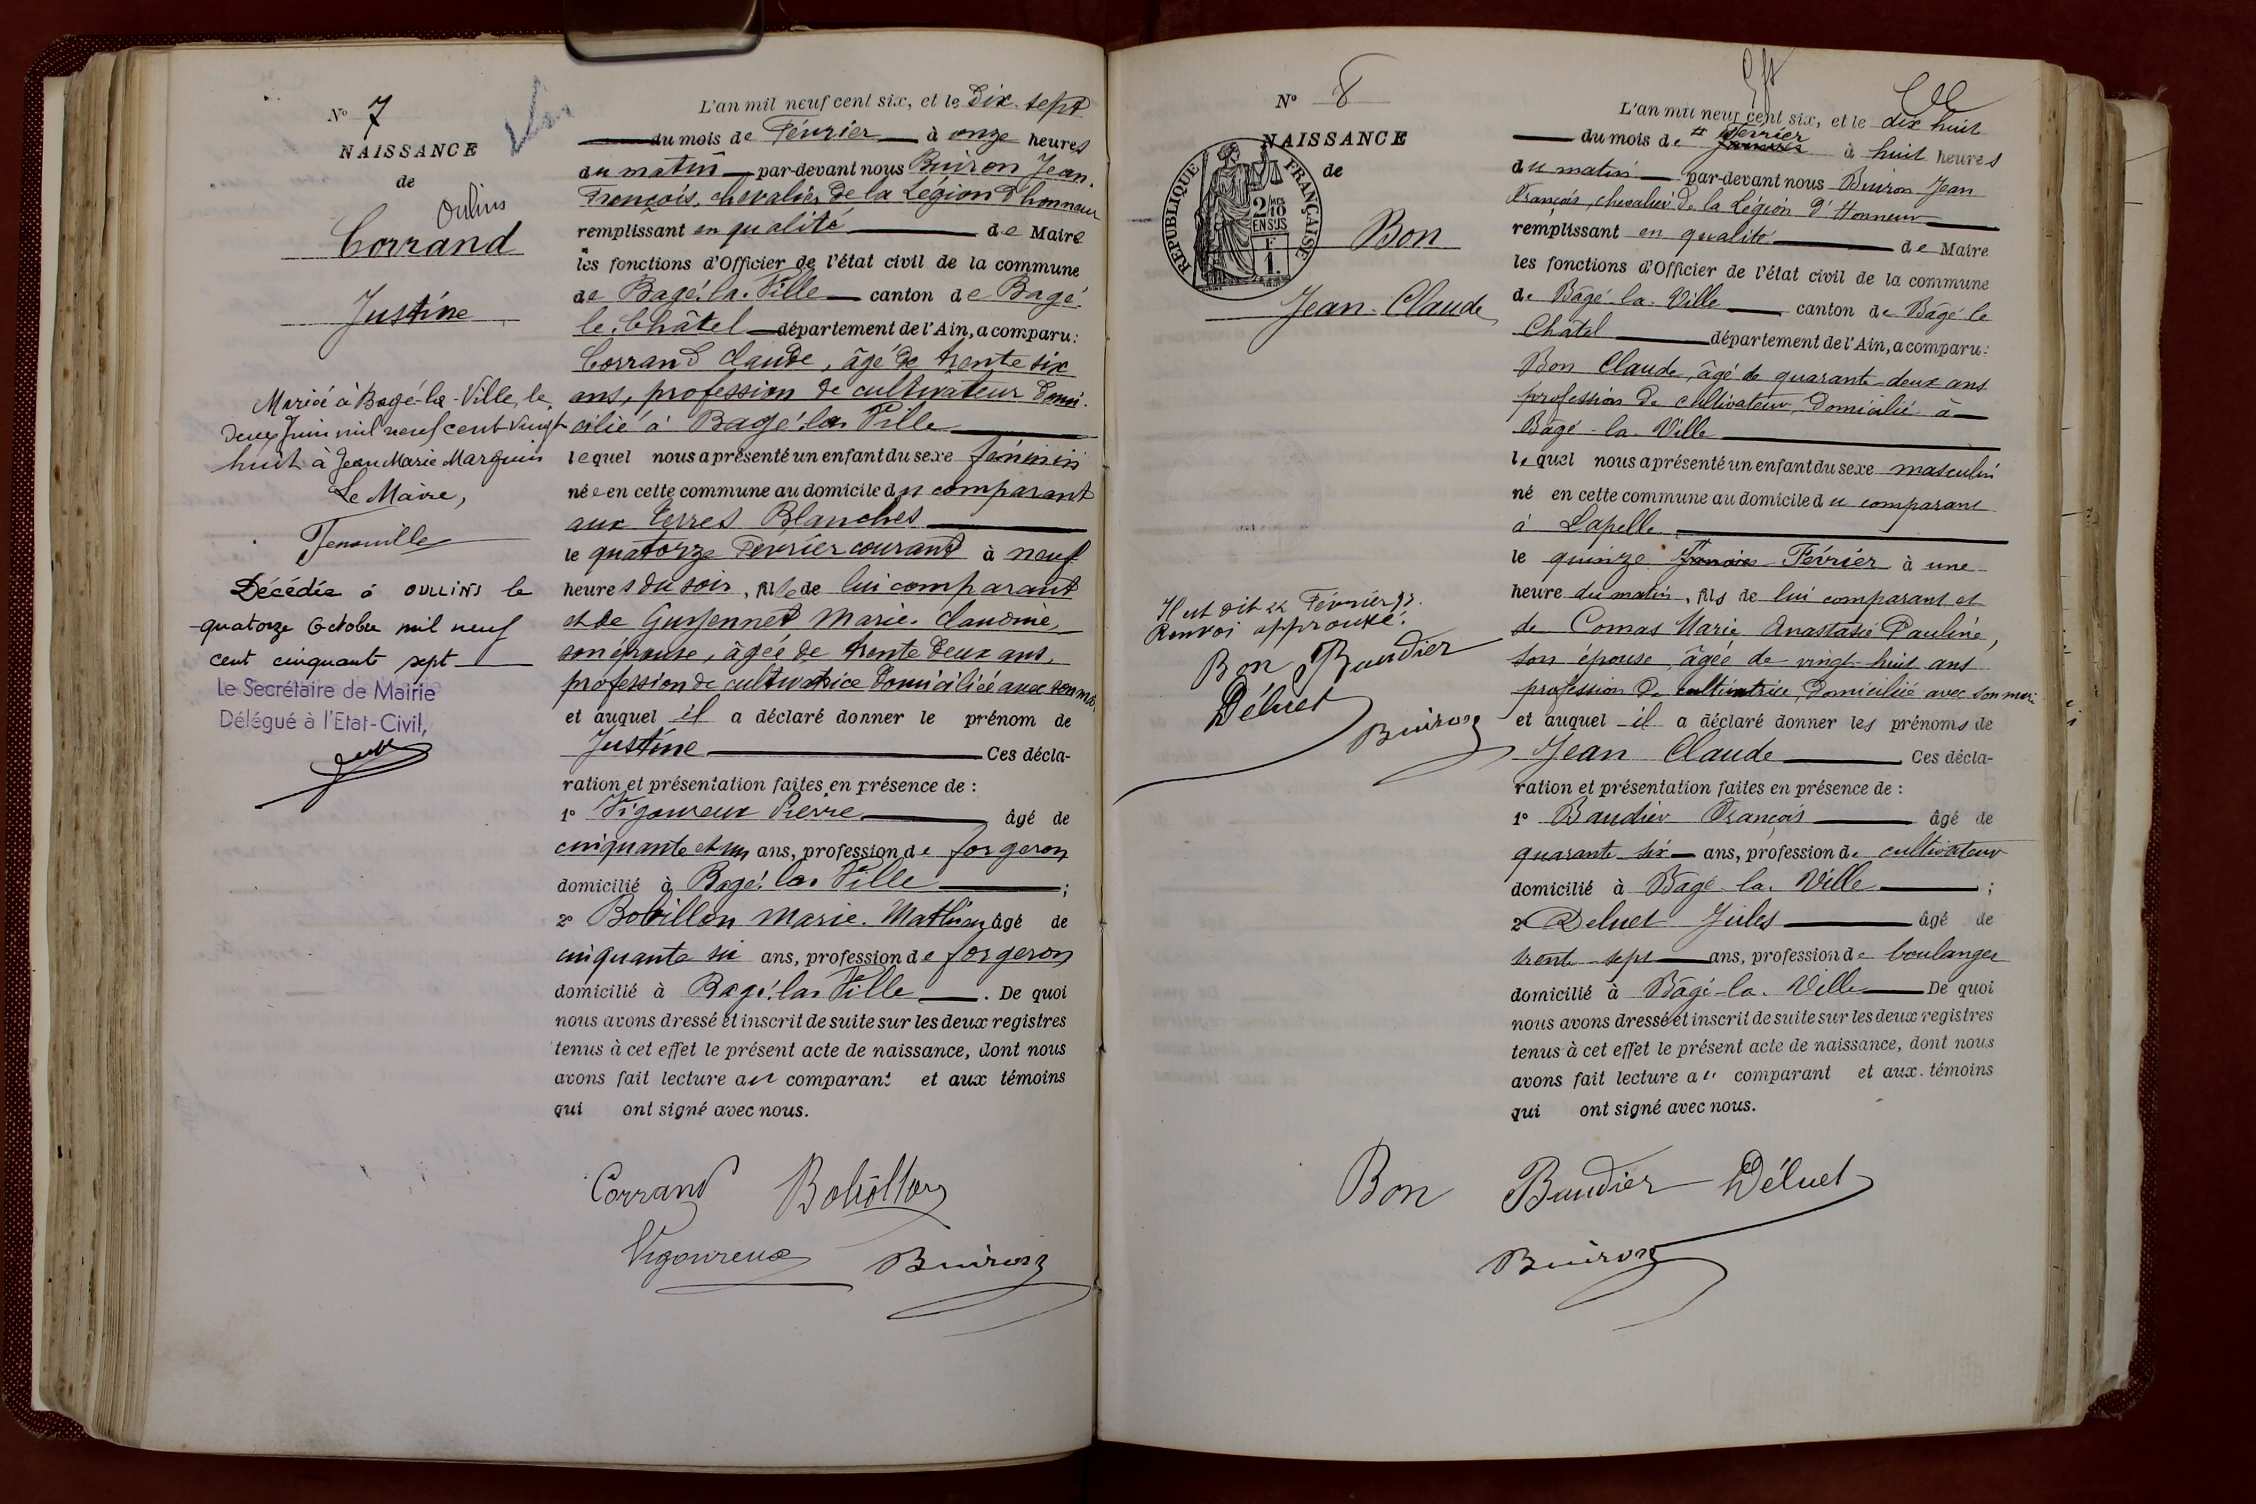 Nº 7
NAISSANCE
de
Oulins
Corrand
Justine
Mariée à Bagé-la-Ville, le
deux Juin mil neuf cent vingt
huit à Jean Marie Marguin
Le Maire,
Décédée à OULLINS le
quatorze Octobre mil neuf
cent cinquante sept
Le Secrétaire de Mairie
Délégué à l'Etat-Civil,
L'an mil neuf cent six, et le Dix-sept
du mois de Février à onze heures
du matin par-devant nous Buiron Jean-
François, chevalier de la Légion d'honneur
remplissant en qualité de Maire
les fonctions d'Officier de l'état civil de la commune
de Bagé-la-Ville canton de Bagé
le Châtel département de l'Ain, a comparu:
Corrand Claude, âgé de trente six
ans, profession de cultivateur domi-
cilié à Bagé-la-Ville
lequel nous a présenté un enfant du sexe féminin
née en cette commune au domicile du comparant
aux Terres Blanches
le quatorze Février courant à neuf
heures du soir, fille de lui comparant
et de Guyennet Marie-Claudine,
son épouse, âgée de trente deux ans,
profession de cultivatrice domiciliée avec son mari
et auquel il a déclaré donner le prénom de
Justine Ces décla-
ration et présentation faites en présence de :
1º Vigoureux Pierre âgé de
cinquante et un ans, profession de forgeron
domicilié à Bagé-la-Ville ;
2º Bobillon Marie-Mathieu âgé de
cinquante six ans, profession de forgeron
domicilié à Bagé-la-Ville . De quoi
nous avons dressé et inscrit de suite sur les deux registres
tenus à cet effet le présent acte de naissance, dont nous
avons fait lecture au comparant et aux témoins
qui ont signé avec nous.
Corrand Bobillon
Vigoureux Buiron
Nº 8
NAISSANCE
de
REPUBLIQUE FRANÇAISE
2/10 MES
EN SUS
1 F.
Bon
Jean-Claude
Huit dit Février
Renvoi approuvé.
Bon Baudier
Déluet
Buiron
L'an mil neuf cent six, et le dix huit
du mois de Février Janvier à huit heures
du matin par-devant nous Buiron Jean
François, chevalier de la Légion d'Honneur
remplissant en qualité de Maire
les fonctions d'Officier de l'état civil de la commune
de Bâgé-la-Ville canton de Bâgé-le
Châtel département de l'Ain, a comparu:
Bon Claude, âgé de quarante-deux ans
profession de cultivateur, domicilié à
Bâgé-la-Ville
lequel nous a présenté un enfant du sexe masculin
né en cette commune au domicile du comparant
à Lapelle
le quinze Janvier Février à une
heure du matin, fils de lui comparant et
de Comas Marie Anastasie Pauline,
son épouse âgée de vingt-huit ans
profession de cultivatrice, domiciliée avec son mari
et auquel il a déclaré donner les prénoms de
Jean Claude Ces décla-
ration et présentation faites en présence de :
1º Baudier François âgé de
quarante-six ans, profession de cultivateur
domicilié à Bâgé-la-Ville ;
2º Deluet Jules âgé de
trente-sept ans, profession de boulanger
domicilié à Bâgé-la-Ville De quoi
nous avons dressé et inscrit de suite sur les deux registres
tenus à cet effet le présent acte de naissance, dont nous
avons fait lecture au comparant et aux témoins
qui ont signé avec nous.
Bon Baudier Déluet
Buiron